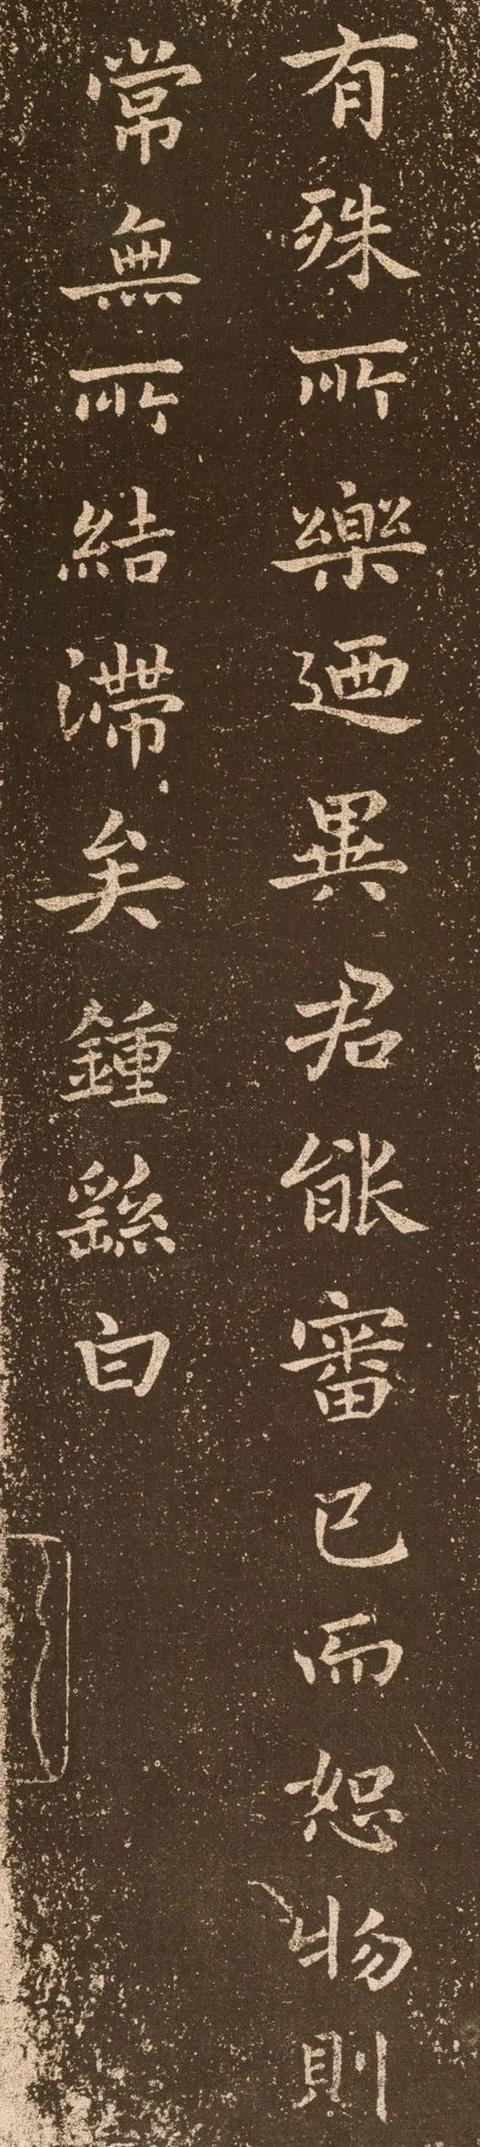 有殊所樂廼異君能審己而恕物則
常無所結滯矣鍾繇白